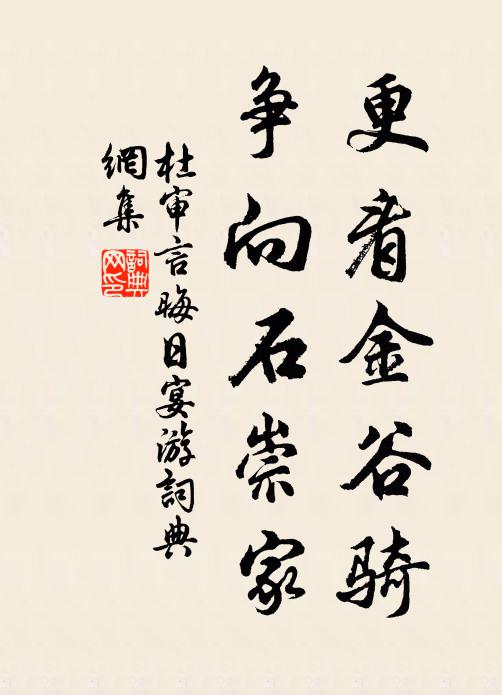 更看金谷骑
争向石崇家
杜审言晦日宴游词典
網集
詞典网印